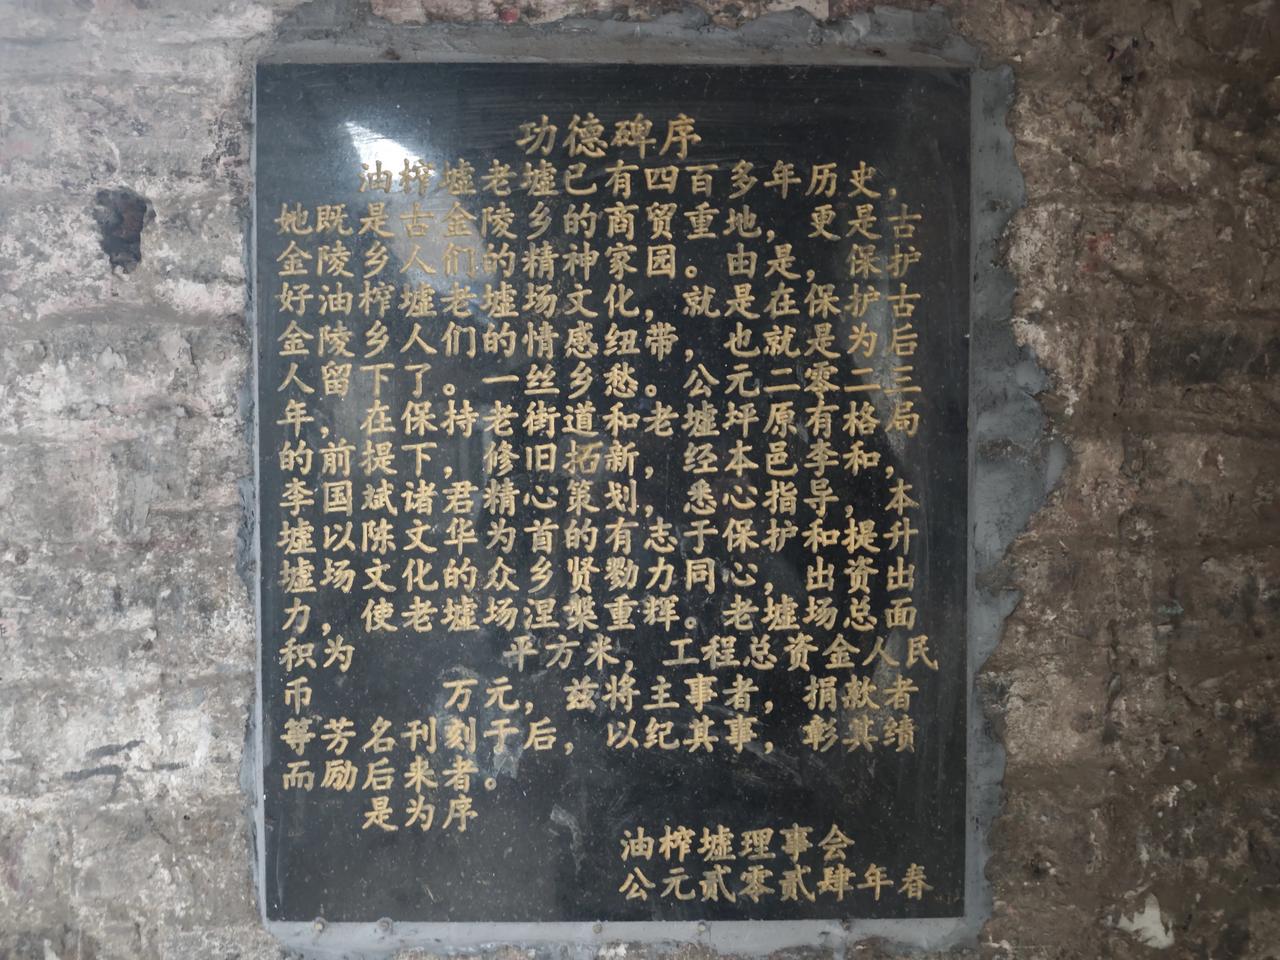 功德碑序
油榨墟老墟已有四百多年历史，
她既是古金陵乡的商贸重地，更是古
金陵乡人们的精神家园。由是，保护
好油榨墟老墟场文化，就是在保护古
金陵乡人们的情感纽带，也就是为后
人留下了。一丝乡愁。公元二零二三
年，在保持老街道和老墟坪原有格局
的前提下，修旧拓新，经本邑李和，
李国斌诸君精心策划，悉心指导，本
墟以陈文华为首的有志于保护和提升
墟场文化的众乡贤勠力同心，出资出
力，使老墟场涅槃重辉。老墟场总面
积为 平方米，工程总资金人民
币 万元，兹将主事者，捐款者
等芳名刊刻于后，以纪其事，彰其绩
而励后来者。
是为序
油榨墟理事会
公元贰零贰肆年春